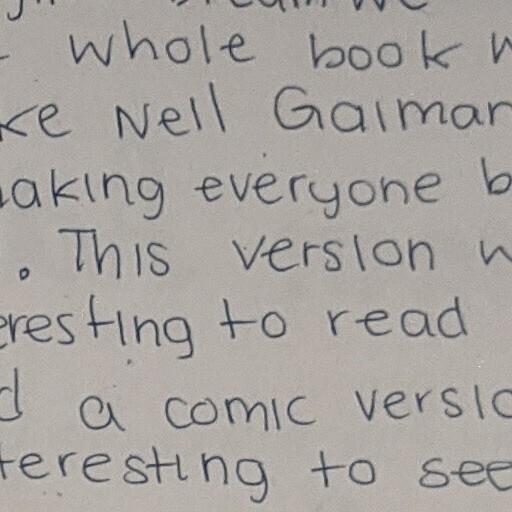 whole book
ke Neil Gaiman
aking everyone b
. This version w
eresting to read
d a comic versio
teresting to see